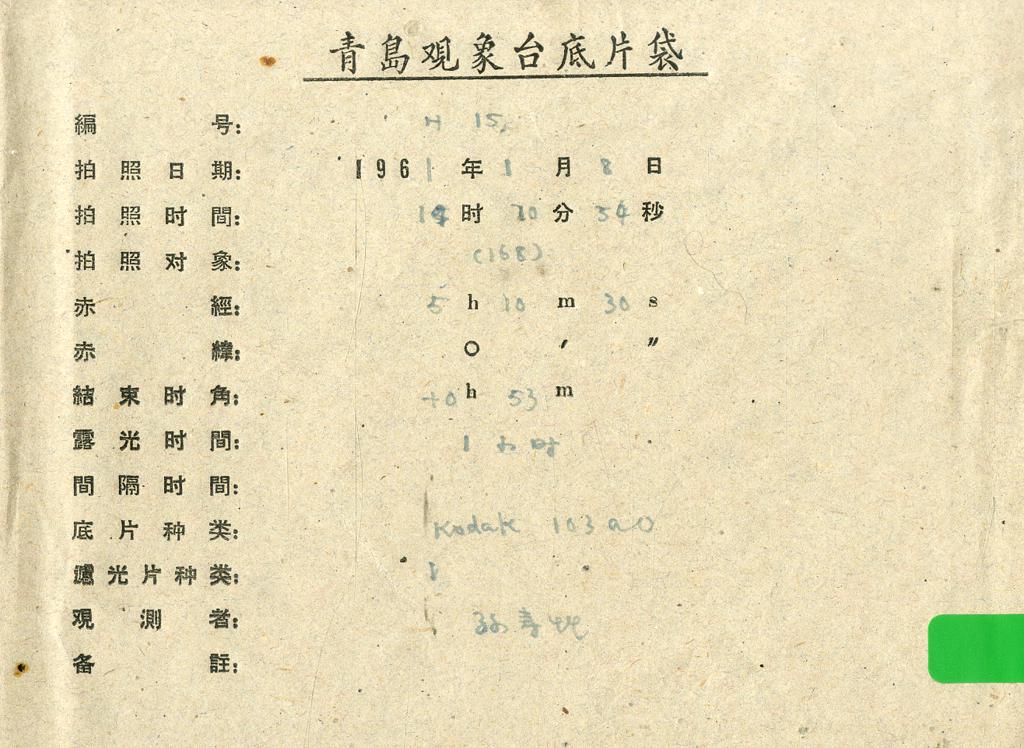 青島观象台底片袋
編号: H 15
拍照日期: 1961年1月8日
拍照时間: 时 分54秒
拍照对象: (168)
赤經: 5h 10m 30s
赤緯: ○ ′ ″
結束时角: +0h 53m
露光时間: 1小时
間隔时間:
底片种类: Kodak 103aO
濾光片种类:
观測者: 孙寿
备註: